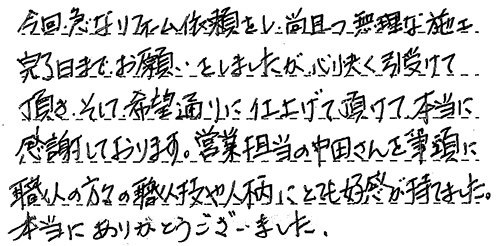 今回急なリフォーム依頼をし尚且つ無理な施工
完了日までお願いをしましたが心快く引受けて
頂き、そして希望通りに仕上げて頂けて、本当に
感謝しております。営業担当の中田さんを筆頭に
職人の方々の職人技や人柄にとても好感が持てました。
本当にありがとうございました。